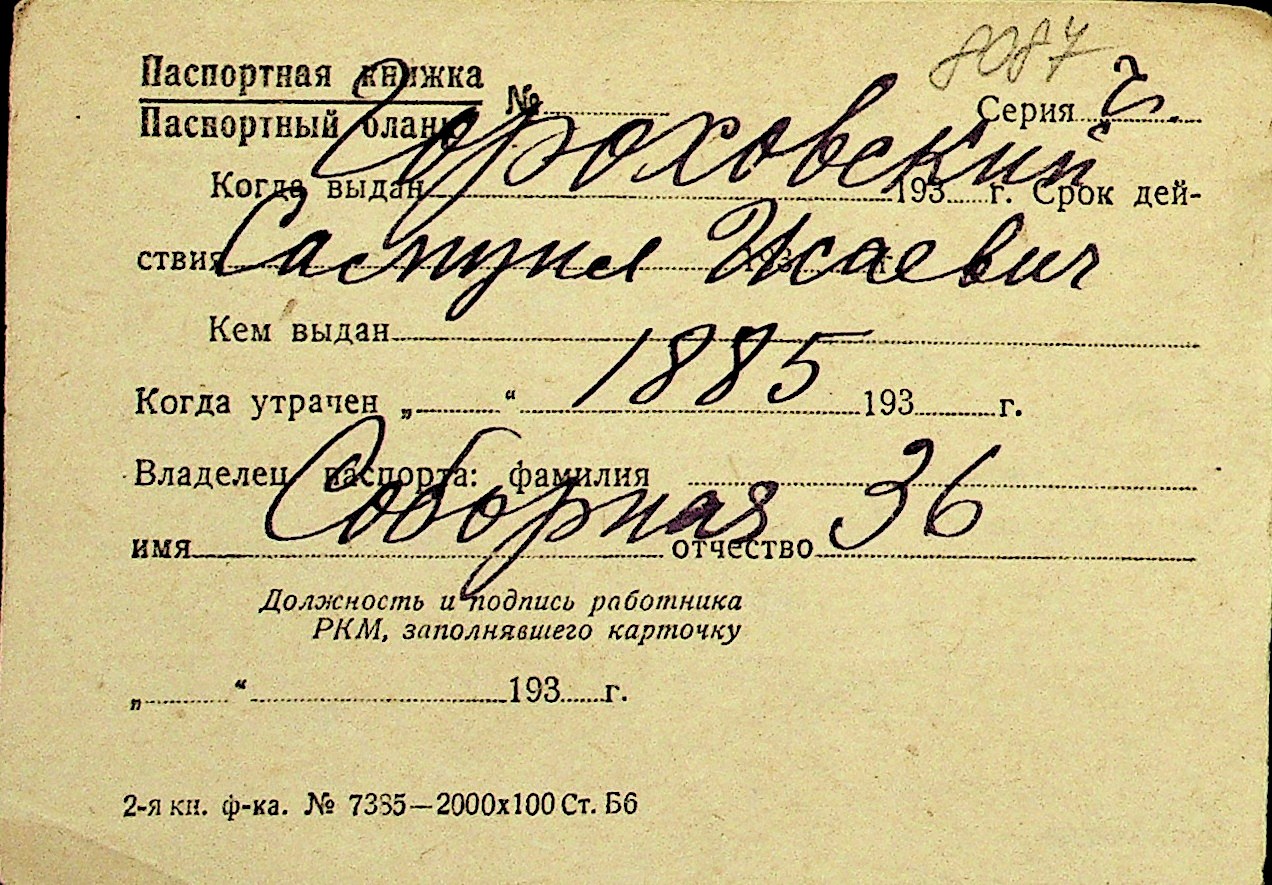 8087
Паспортная книжка
Паспортный бланк № Серия
Гороховский
Когда выдан 193 г. Срок дей-
Самуил Исаевич
ствия 193 г.
Кем выдан
1885
Когда утрачен „ “ 193 г.
Владелец паспорта: фамилия
Соборная 36
имя отчество
Должность и подпись работника
РКМ, заполнявшего карточку
„ “ 193 г.
2-я кн. ф-ка. № 7385—2000х100 Ст. Б6